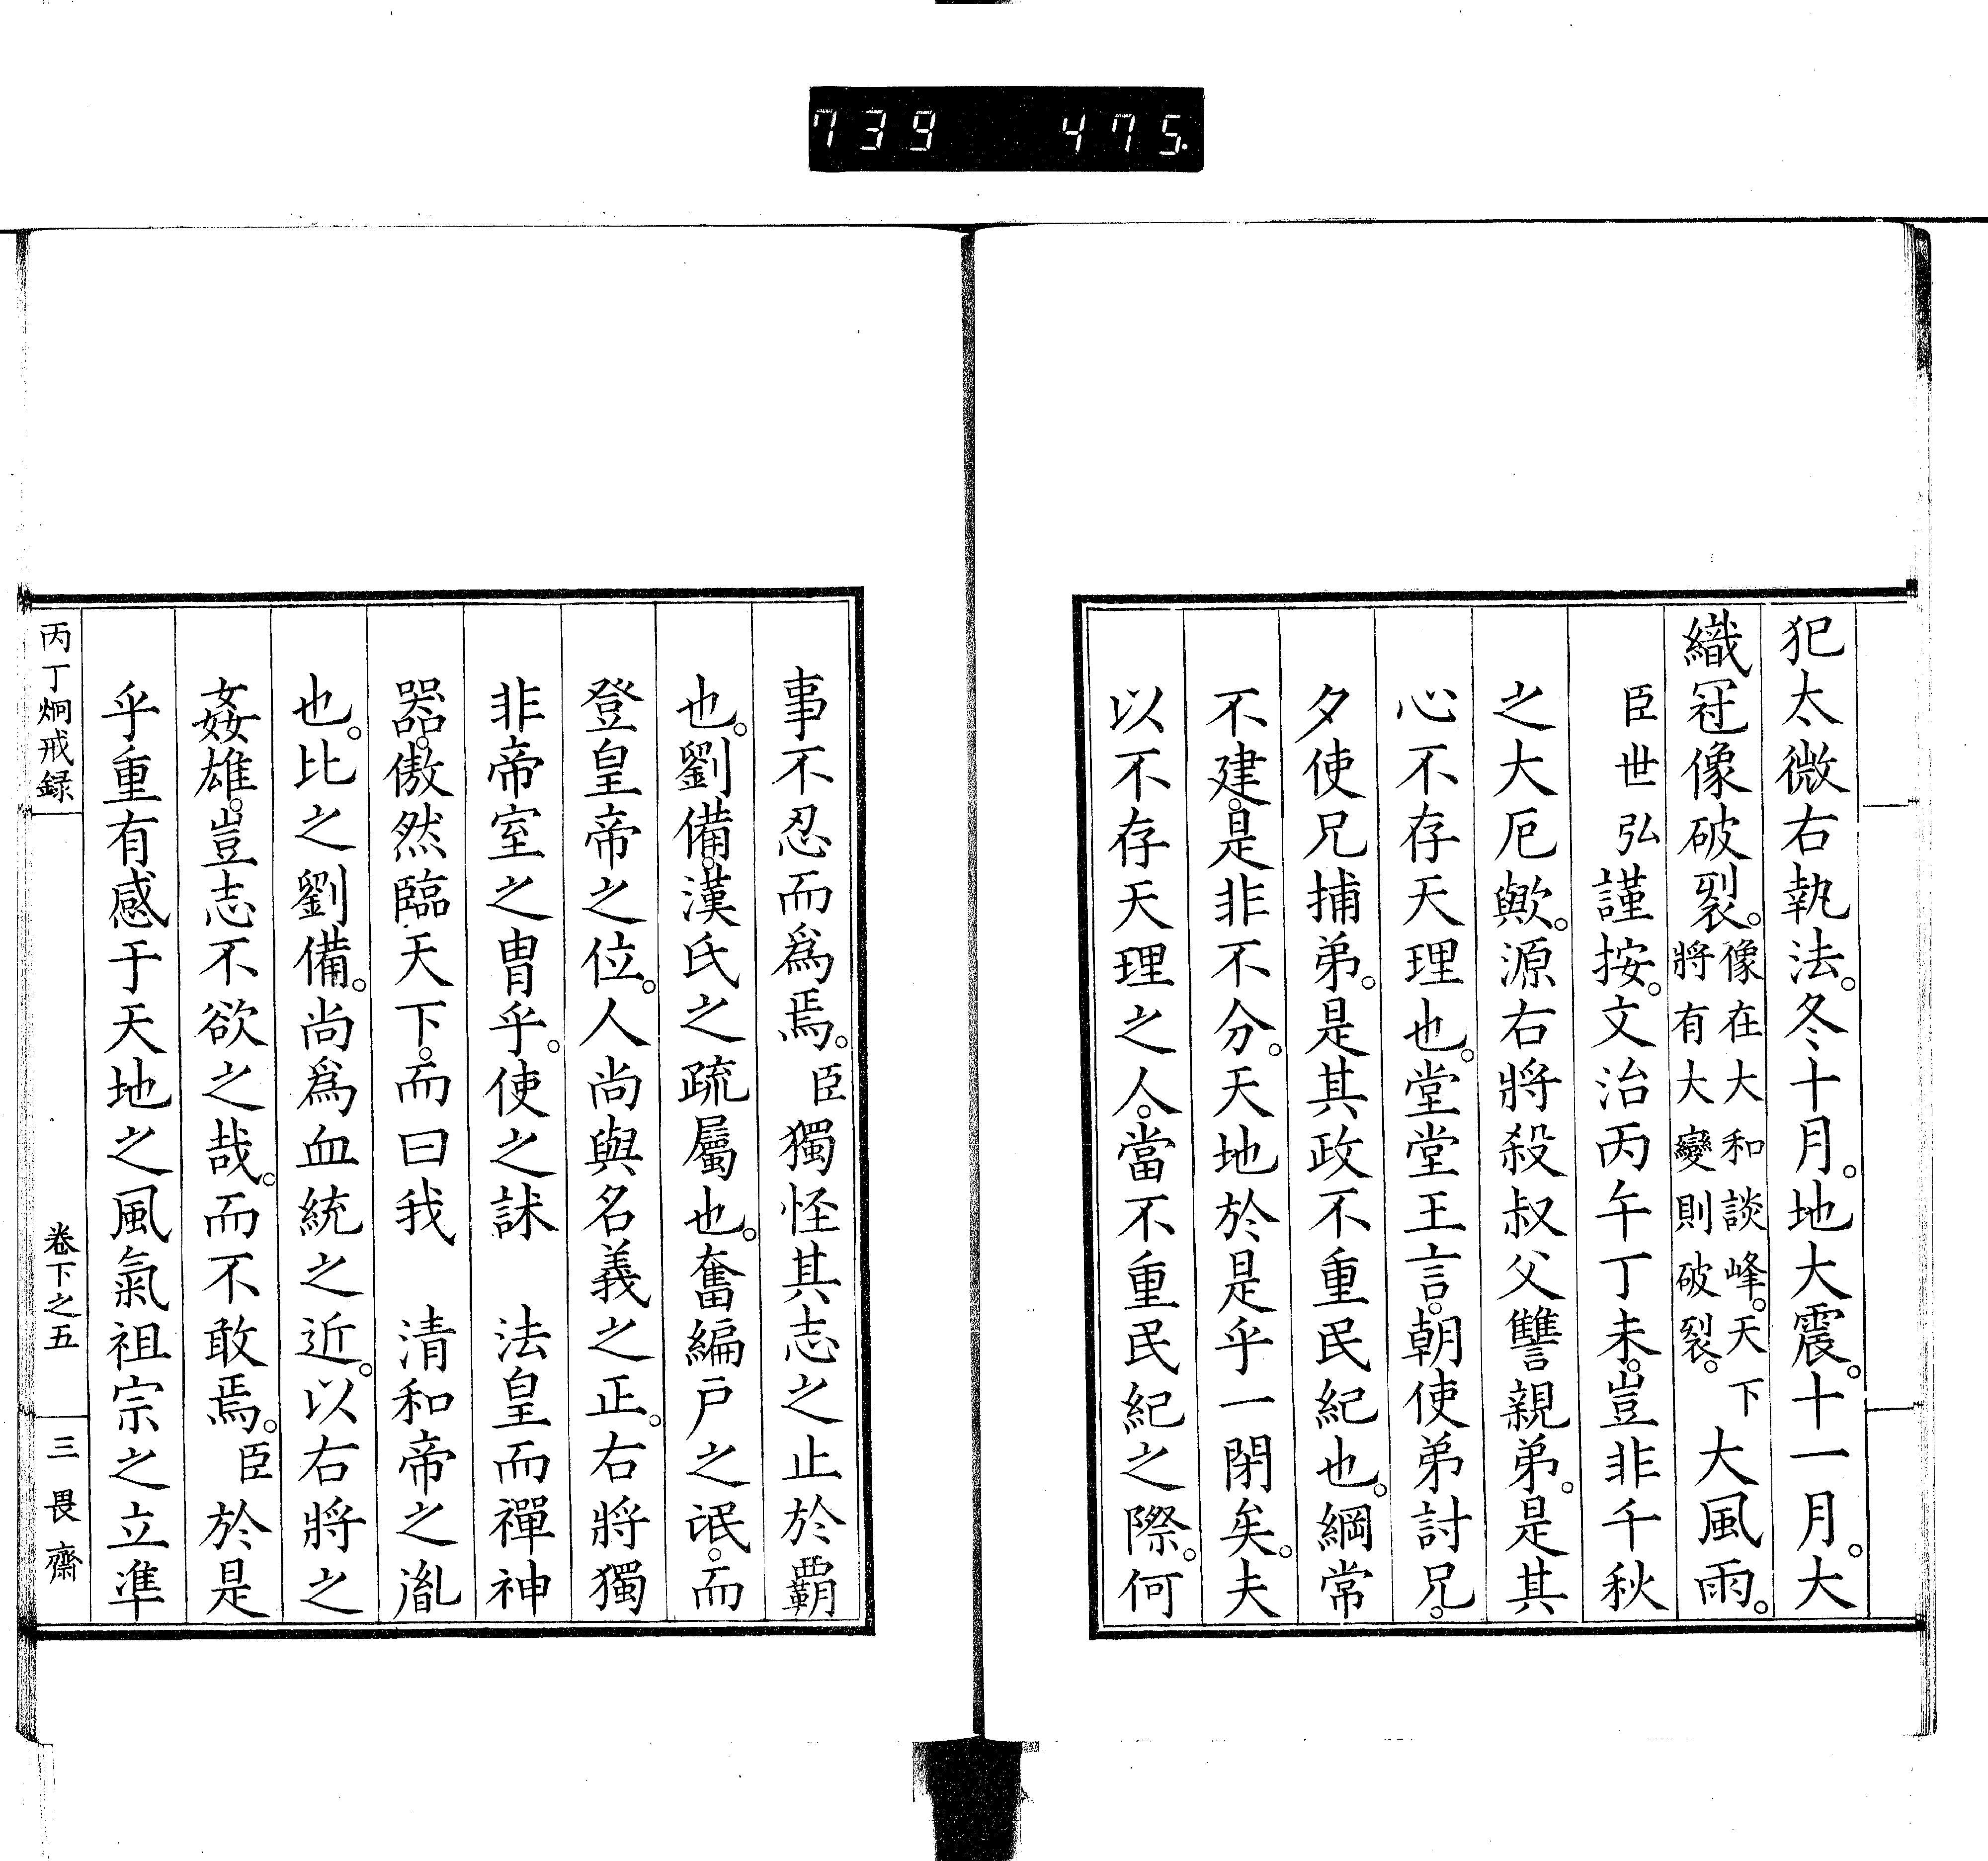 739 475
犯太微右執法。冬十月。地大震。十一月。大
織冠像破裂。像在大和談峰。天下將有大變則破裂。大風雨。
臣世弘謹按。文治丙午丁未。豈非千秋
之大厄歟。源右將殺叔父讐親弟。是其
心不存天理也。堂堂王言。朝使弟討兄。
夕使兄捕弟。是其政不重民紀也。綱常
不建。是非不分。天地於是乎一閉矣。夫
以不存天理之人。當不重民紀之際。何
事不忍而爲焉。臣獨怪其志之止於覇
也。劉備。漢氏之疏屬也。奮編戶之氓。而
登皇帝之位。人尚與名義之正。右將獨
非帝室之冑乎。使之訹 法皇而禪神
器。傲然臨天下。而曰我 清和帝之胤
也。比之劉備。尚爲血統之近。以右將之
姦雄。豈志不欲之哉。而不敢焉。臣於是
乎重有感于天地之風氣祖宗之立準
丙丁烱戒録 卷下之五 三畏齋